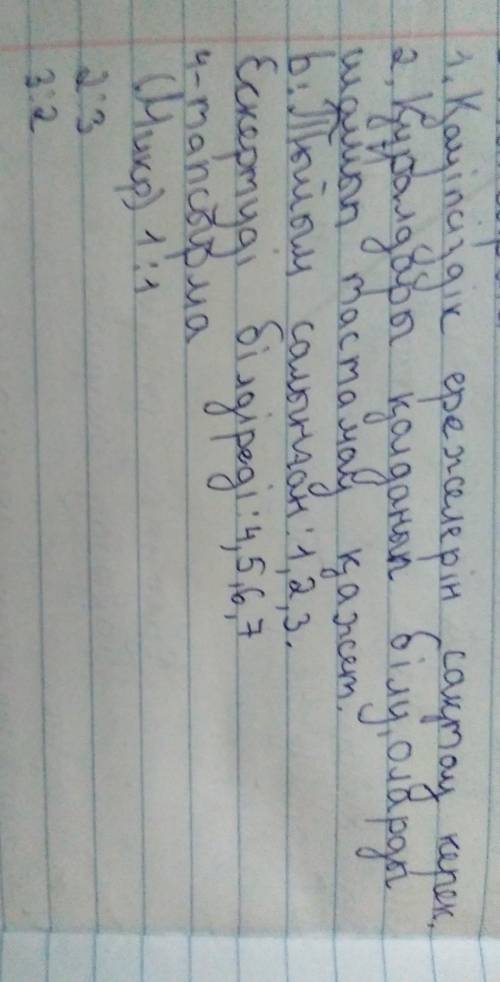 1. Қауіпсіздік ережелерін сақтау керек.
2. Құралдары қолданып білу, оларды
шашып тастамау қажет.
b: Тыйым салынған: 1, 2, 3.
Ескертуді білдіреді: 4, 5, 6, 7
4-тапсырма
1:1
2:3
3:2